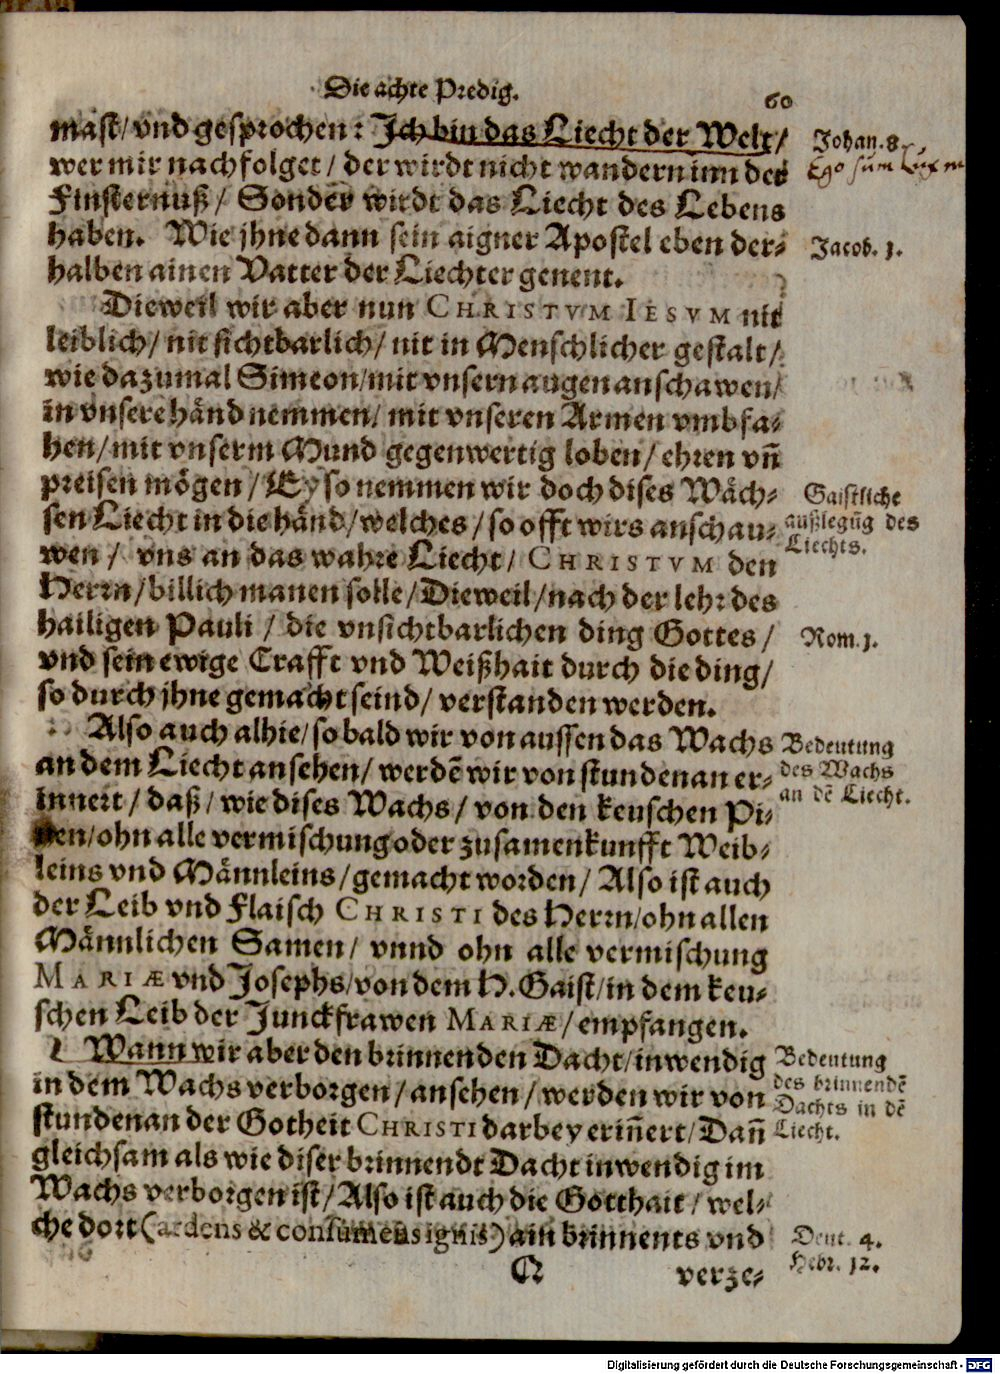 Die achte Predig.
60
mast/ vnd gesprochen: Ich bin das Liecht der Welt/
wer mir nachfolget/ der wirdt nicht wandern inn der
Finsternuß/ Sonder wirdt das Liecht des Lebens
haben. Wie jhne dann sein aigner Apostel eben der-
halben ainen Vatter der Liechter genent.
Johan. 8.
Ego sum Lux m
Jacob. 1.
Dieweil wir aber nun CHRISTVM IESVM nit
leiblich/ nit sichtbarlich/ nit in Menschlicher gestalt/
wie dazumal Simeon/ mit vnsern augen anschawen/
in vnsere händ nemmen/ mit vnseren Armen vmbfa-
hen/ mit vnserm Mund gegenwertig loben/ ehren vn̄
preisen mögen/ Ey so nemmen wir doch dises Wäch-
sen Liecht in die händ/ welches/ so offt wirs anschau-
wen/ vns an das wahre Liecht/ CHRISTVM den
Herrn/ billich manen solle/ Dieweil/ nach der lehr des
hailigen Pauli/ die vnsichtbarlichen ding Gottes/
vnd sein ewige Crafft vnd Weißhait durch die ding/
so durch jhne gemacht seind/ verstanden werden.
Gaistliche
außlegūg des
Liechts.
Rom. 1.
Also auch alhie/ so bald wir von aussen das Wachs
an dem Liecht ansehen/ werdē wir von stundenan er-
innert/ daß/ wie dises Wachs/ von den keuschen Pi-
nen/ ohn alle vermischung oder zusamenkunfft Weib-
leins vnd Männleins/ gemacht worden/ Also ist auch
der Leib vnd Flaisch CHRISTI des Herrn/ ohn allen
Männlichen Samen/ vnnd ohn alle vermischung
MARIÆ vnd Josephs/ von dem H. Gaist/ in dem keu-
schen Leib der Junckfrawen MARIÆ/ empfangen.
Bedeutung
des Wachs
an dē Liecht.
Wann wir aber den brinnenden Dacht/ inwendig
in dem Wachs verborgen/ ansehen/ werden wir von
stundenan der Gotheit CHRISTI darbey erin̄ert/ Dan̄
gleichsam als wie diser brinnendt Dacht inwendig im
Wachs verborgen ist/ Also ist auch die Gotthait/ wel-
che dort (ardens & consumens ignis) ain brinnents vnd
Bedeutung
des brinnendē
Dachts in dē
Liecht.
Deut. 4.
Hebr. 12.
Q
verze-
Digitalisierung gefördert durch die Deutsche Forschungsgemeinschaft - DFG